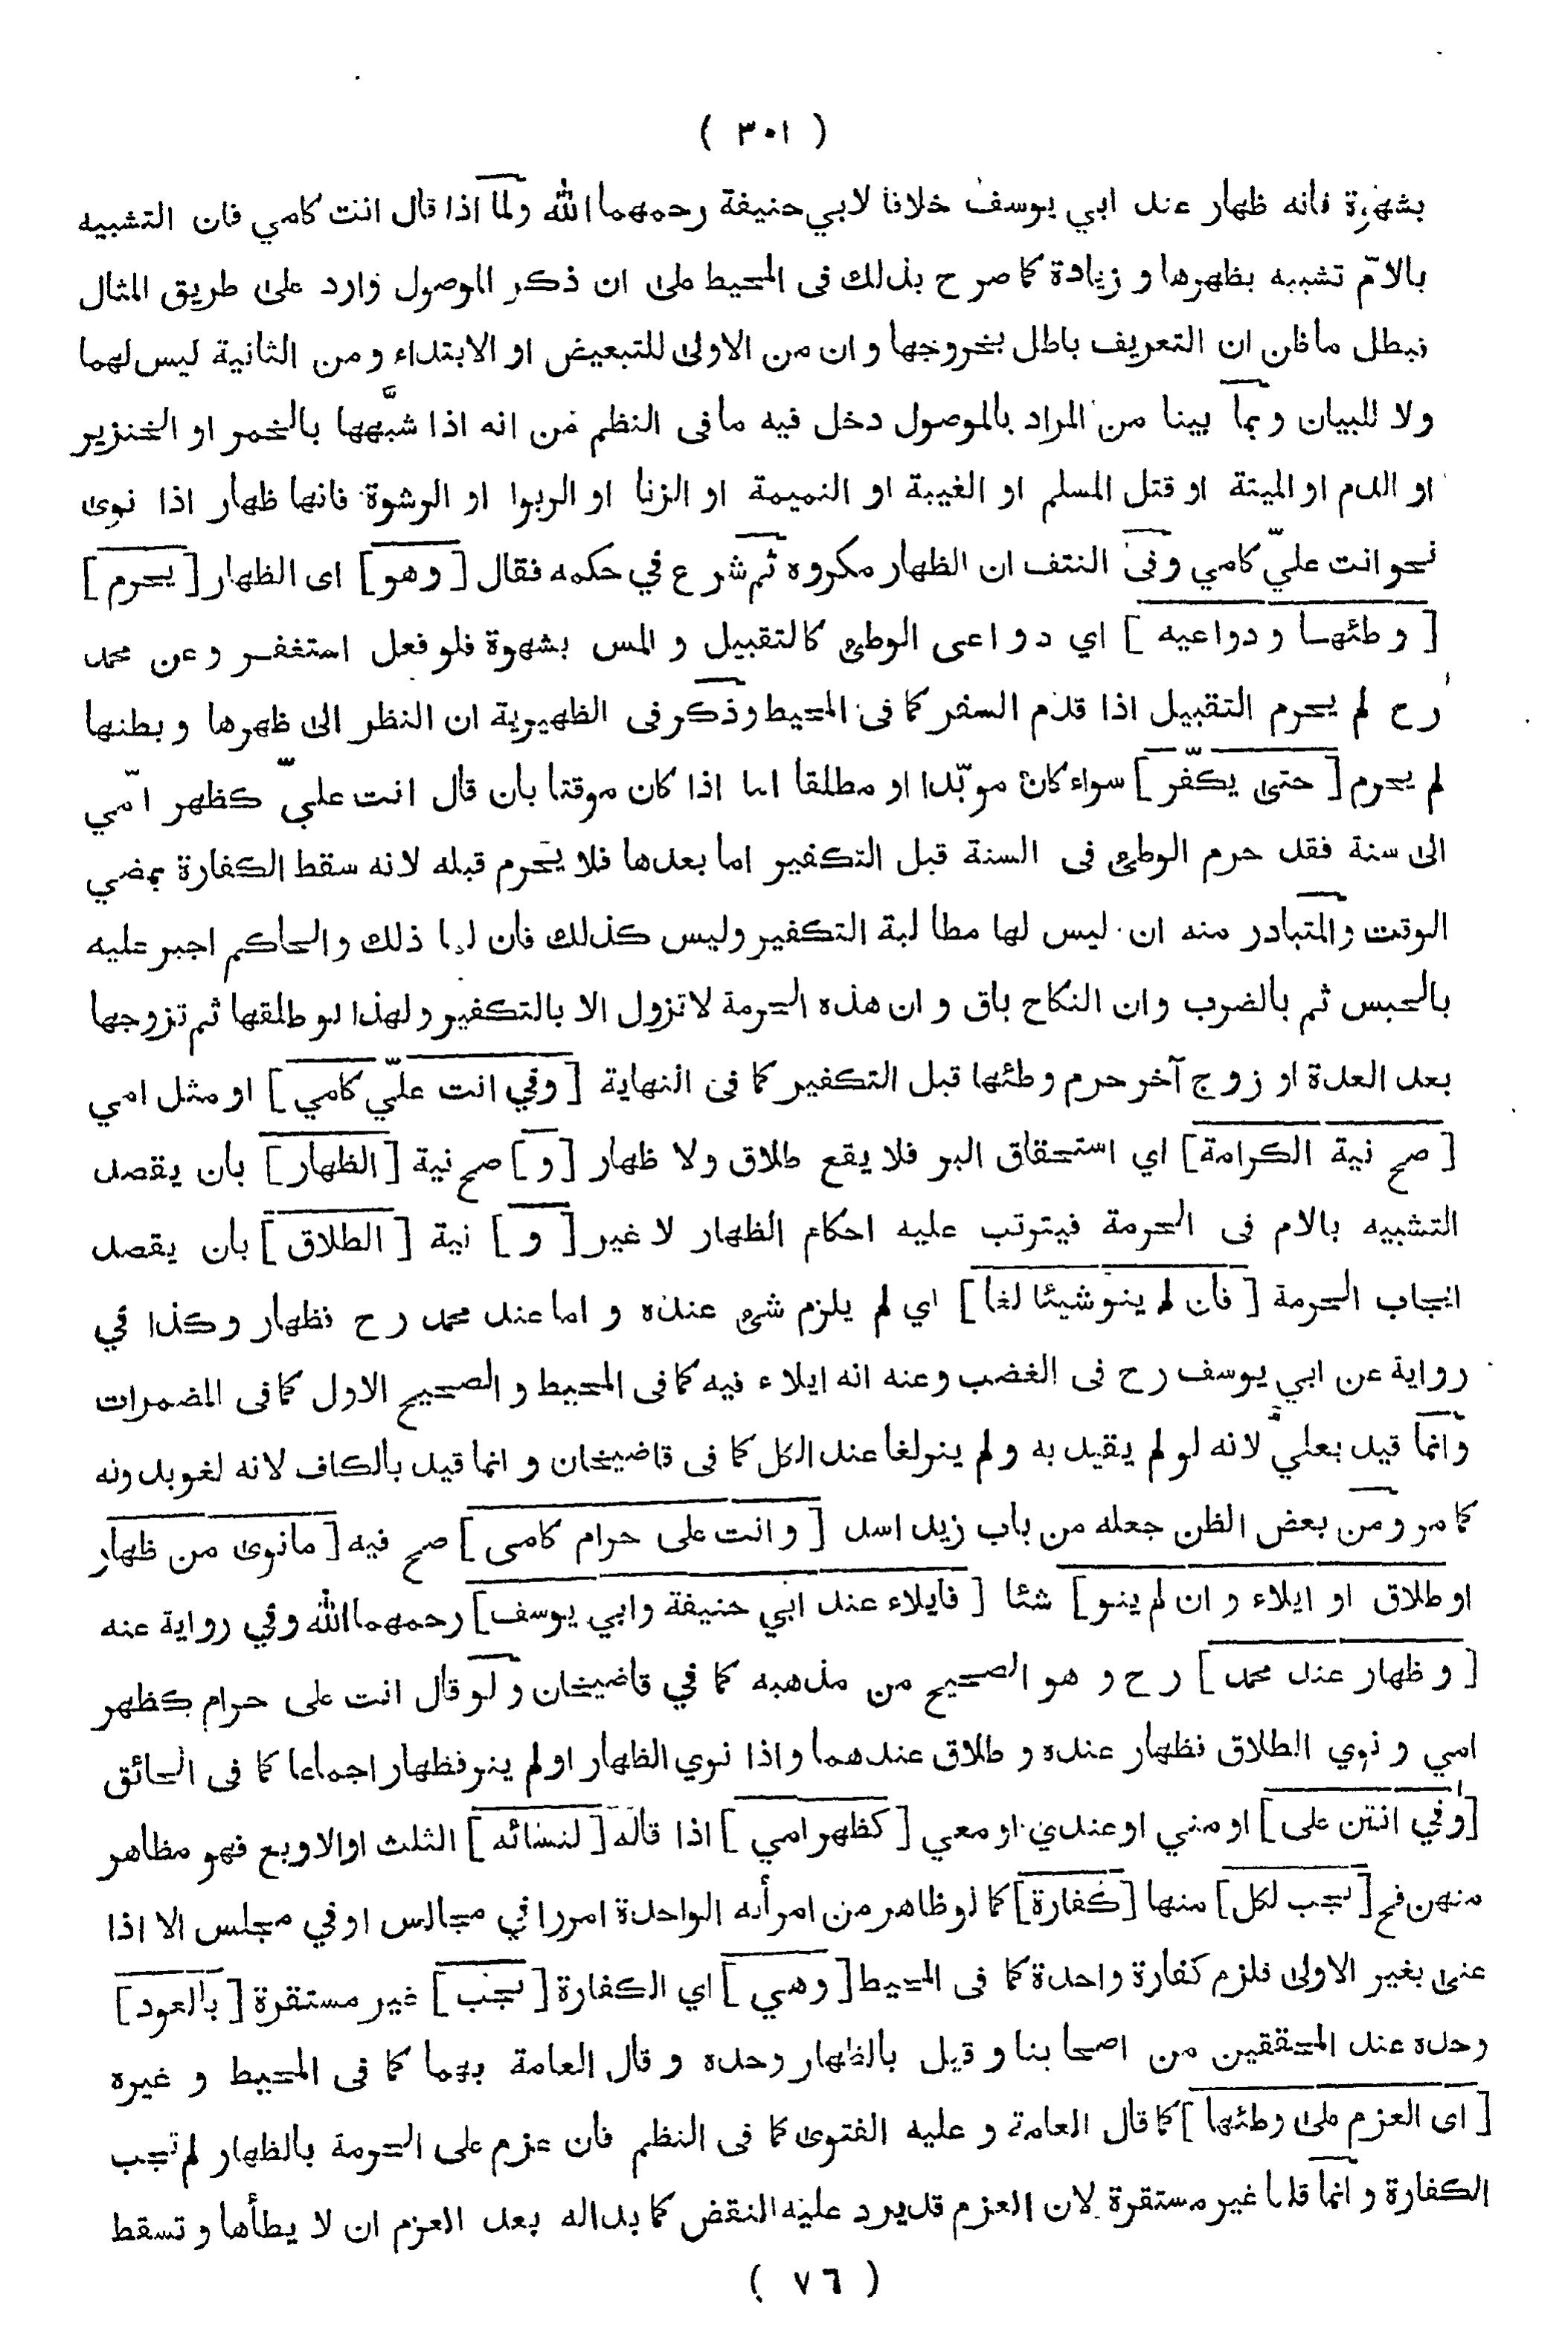 ( ٣٠١ )
بشهوة فانه ظهار عند ابي يوسف خلافا لابي حنيفة رحمهما الله ولما اذا قال انت كامي فان التشبيه
بالامّ تشبيه بظهرها و زيادة كما صرح بذلك فى المحيط على ان ذكر الموصول وارد على طريق المثال
فبطل ماظن ان التعريف باطل بخروجها و ان من الاولى للتبعيض او الابتداء و من الثانية ليس لهما
ولا للبيان و بما بينا من المراد بالموصول دخل فيه مافى النظم من انه اذا شبّهها بالخمر او الخنزير
او الدم او الميتة او قتل المسلم او الغيبة او النميمة او الزنا او الربوا او الرشوة فانها ظهار اذا نوى
نحو انت عليّ كامي وفى النتف ان الظهار مكروه ثم شرع في حكمه فقال [ وهو ] اى الظهار [ يحرم ]
[ وطئها و دواعيه ] اي دواعى الوطى كالتقبيل و المس بشهوة فلو فعل استغفر و عن محمد
رح لم يحرم التقبيل اذا قدم السفر كما فى المحيط و ذكر فى الظهيرية ان النظر الى ظهرها و بطنها
لم يحرم [ حتى يكفّر ] سواء كان موبّدا او مطلقا اما اذا كان موقتا بان قال انت عليّ كظهر امّي
الى سنة فقد حرم الوطى فى السنة قبل التكفير اما بعدها فلا يحرم قبله لانه سقط الكفارة بمضي
الوقت والمتبادر منه ان ليس لها مطالبة التكفير وليس كذلك فان لها ذلك والحاكم اجبر عليه
بالحبس ثم بالضرب وان النكاح باق و ان هذه الحرمة لاتزول الا بالتكفير ولهذا لو طلقها ثم تزوجها
بعد العدة او زوج آخر حرم وطئها قبل التكفير كما فى النهاية [ وفي انت عليّ كامي ] او مثل امي
[ صح نية الكرامة ] اي استحقاق البر فلا يقع طلاق ولا ظهار [ و ] صح نية [ الظهار ] بان يقصد
التشبيه بالام فى الحرمة فيترتب عليه احكام الظهار لا غير [ و ] نية [ الطلاق ] بان يقصد
ايجاب الحرمة [ فان لم ينو شيئا لغا ] اي لم يلزم شى عنده و اما عند محمد رح فظهار وكذا في
رواية عن ابي يوسف رح فى الغضب وعنه انه ايلاء فيه كما فى المحيط و الصحيح الاول كما فى المضمرات
وانما قيد بعليّ لانه لو لم يقيد به ولم ينو لغا عند الكل كما فى قاضيخان و انما قيد بالكاف لانه لغو بدونه
كما مر ومن بعض الظن جعله من باب زيد اسد [ و انت على حرام كامى ] صح فيه [ مانوى من ظهار
او طلاق او ايلاء و ان لم ينو ] شئا [ فايلاء عند ابي حنيفة وابي يوسف ] رحمهما الله وفي رواية عنه
[ و ظهار عند محمد ] رح و هو الصحيح من مذهبه كما في قاضيخان و لو قال انت على حرام كظهر
امي و نوي الطلاق فظهار عنده و طلاق عندهما واذا نوي الظهار اولم ينو فظهار اجماعا كما فى الحائق
[ وفي انتن على ] او مني او عندي او معي [ كظهر امي ] اذا قاله [ لنسائه ] الثلث اوالاوبع فهو مظاهر
منهن فح [ يجب لكل ] منها [ كفارة ] كما لو ظاهر من امرأته الواحدة امررا في مجالس اوفي مجلس الا اذا
عنى بغير الاولى فلزم كفارة واحدة كما فى المحيط [ وهي ] اي الكفارة [ تجب ] غير مستقرة [ بالعود ]
وحده عند المحققين من اصحابنا و قيل بالظهار وحده و قال العامة بهما كما فى المحيط و غيره
[ اى العزم على وطئها ] كما قال العامة و عليه الفتوى كما فى النظم فان عزم على الحرمة بالظهار لم تجب
الكفارة و انما قلنا غير مستقرة لان العزم قديرد عليه النقض كما بداله بعد العزم ان لا يطأها و تسقط
( ٧٦ )